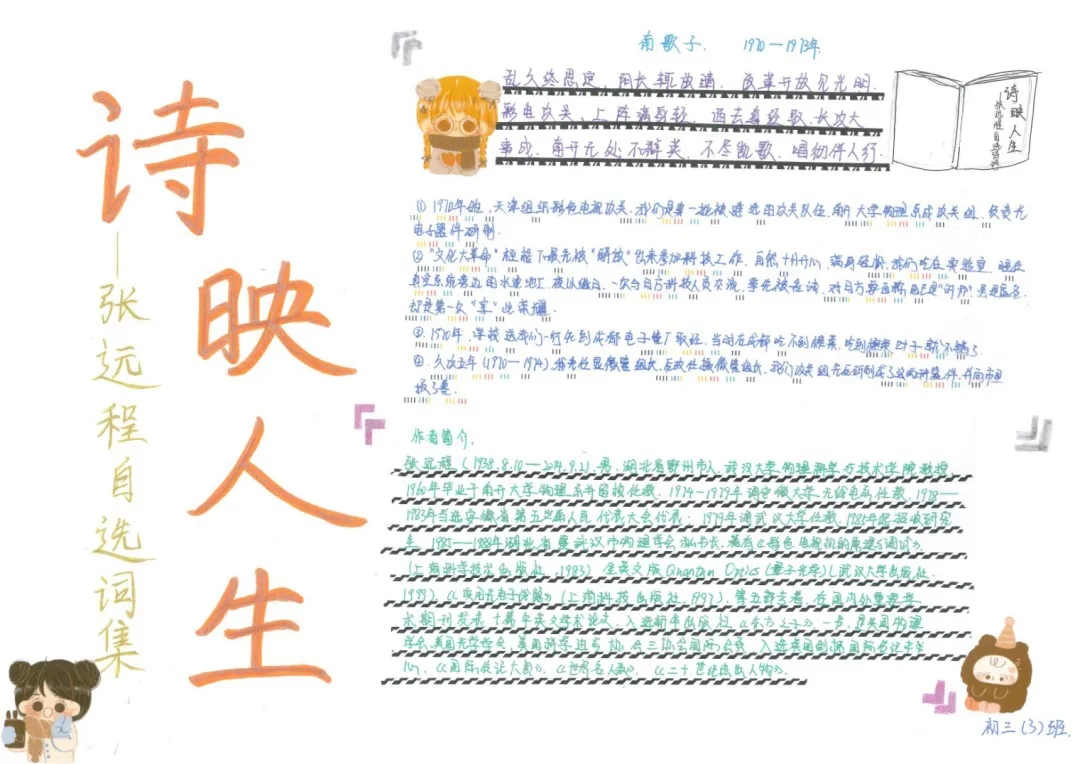 诗映人生
——张远程自选词集
南歌子. 1970—1973年
乱久终思定, 用长辄放晴. 改革开放见光明.
彩电攻关, 上阵满身轻. 西去尊经取, 长攻大
事成. 南开无处不群英. 不尽凯歌, 唱彻伴人行.
诗映人生
——张远程自选词
① 1970年始, 天津组织彩色电视攻关. 我们是第一批被遴选的攻关队伍, 南开大学物理系成攻关组, 负责光
电子器件研制.
② "文化大革命"桎梏下最先被"解放"出来参加科技工作, 自然十分开心, 满身轻松. 我们吃在实验室, 睡在
夜以继日. 一次与日方科技人员交流,
却是第一次"享"此荣耀.
③. 1970年, 学校送我们一行先到成都电子管厂取经. 当时在成都吃不到
④. 久攻五年 (1970—1974). 我们攻关组先后研制成了这两种器件, 并向市里
报了喜.
作者简介.
张远程 (1938.8.10—2014.9.2). 男, 湖北省鄂州市人, 武汉大学物理科学与技术学院教授.
1960年毕业于南开大学物理系并留校任教. 1974—1979年调安徽大学无线电系任教, 1978—
1983年当选安徽省第五届人民代表大会代表; 1979年调武汉大学任教, 1985年
1985—1988年湖北省暨武汉市物理学会秘书长. 著有《彩色电视机的原理与调试》.
(上海科学技术出版社, 1983) 全英文版 Quantun Optics (量子光学) (武汉大学出版社.
(上海科技出版社, 1997). 等五部专著, 在国内外重要学
术期刊发表十篇中英文学术论文. 入选新华出版社《东方之子》一书. 是美国物理
学会, 美国光学学会, 美国科学进步协会三协会国际会员, 入选英国剑桥国际传记中心
《国际传记大典》. 《世界名人录》. 《二十世纪杰出人物》.
初三(3)班.